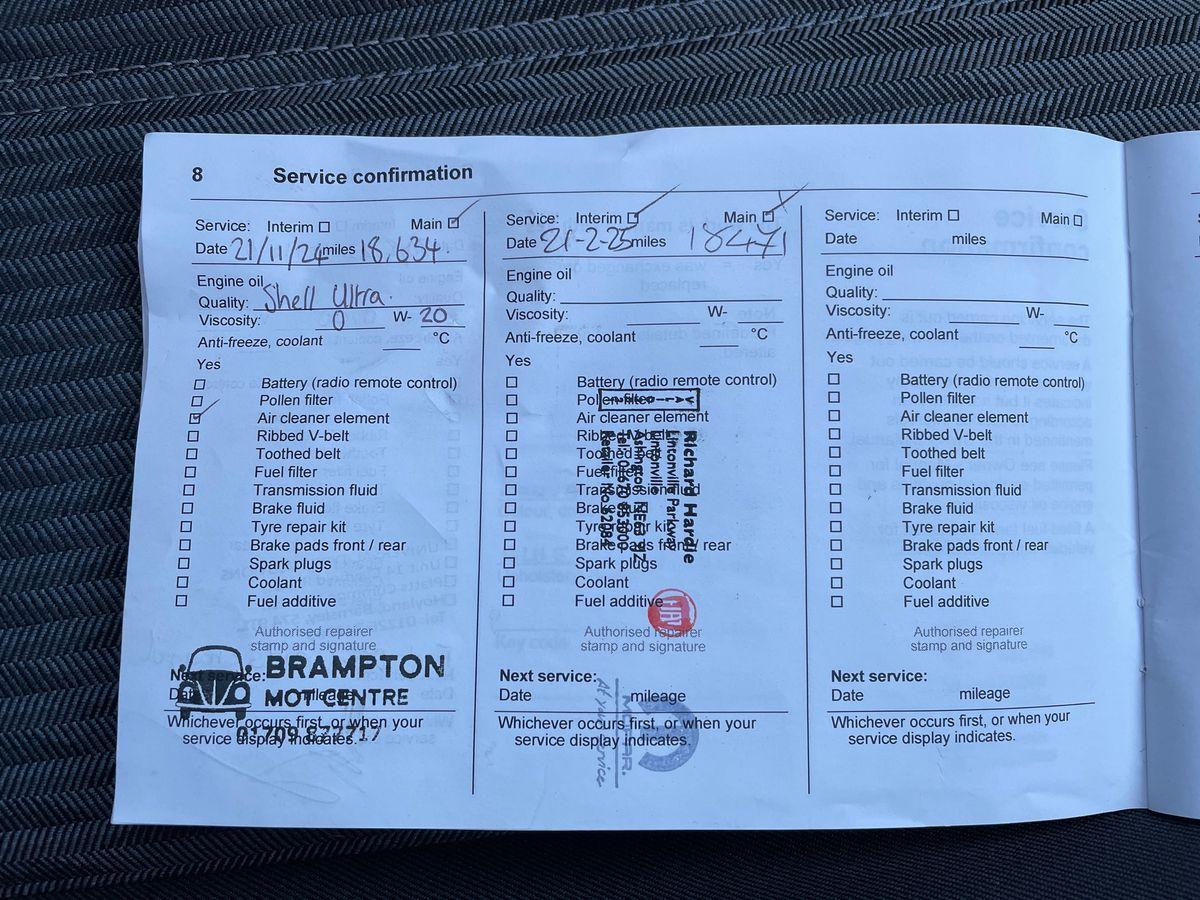 8 Service confirmation
Service: Interim Main
Date 21/11/24 miles 18,634.
Engine oil
Quality: Shell Ultra.
Viscosity: 0 W- 20
Anti-freeze, coolant °C
Yes
Battery (radio remote control)
Pollen filter
Air cleaner element
Ribbed V-belt
Toothed belt
Fuel filter
Transmission fluid
Brake fluid
Tyre repair kit
Brake pads front / rear
Spark plugs
Coolant
Fuel additive
Authorised repairer
stamp and signature
BRAMPTON
MOT CENTRE
01709 877717
Next service:
Date mileage
Whichever occurs first, or when your
service display indicates.
Service: Interim Main
Date 21-2-25 miles 18471
Engine oil
Quality:
Viscosity: W-
Anti-freeze, coolant °C
Yes
Battery (radio remote control)
Pollen filter
Air cleaner element
Ribbed V-belt
Toothed belt
Fuel filter
Transmission fluid
Brake fluid
Tyre repair kit
Brake pads front / rear
Spark plugs
Coolant
Fuel additive
Richard Hardie
Lintonville Parkway
Lintonville
Ashington NE63 9JZ
FIAT
Authorised repairer
stamp and signature
Next service:
Date mileage
Whichever occurs first, or when your
service display indicates.
MOPAR.
At your service
Service: Interim Main
Date miles
Engine oil
Quality:
Viscosity: W-
Anti-freeze, coolant °C
Yes
Battery (radio remote control)
Pollen filter
Air cleaner element
Ribbed V-belt
Toothed belt
Fuel filter
Transmission fluid
Brake fluid
Tyre repair kit
Brake pads front / rear
Spark plugs
Coolant
Fuel additive
Authorised repairer
stamp and signature
Next service:
Date mileage
Whichever occurs first, or when your
service display indicates.